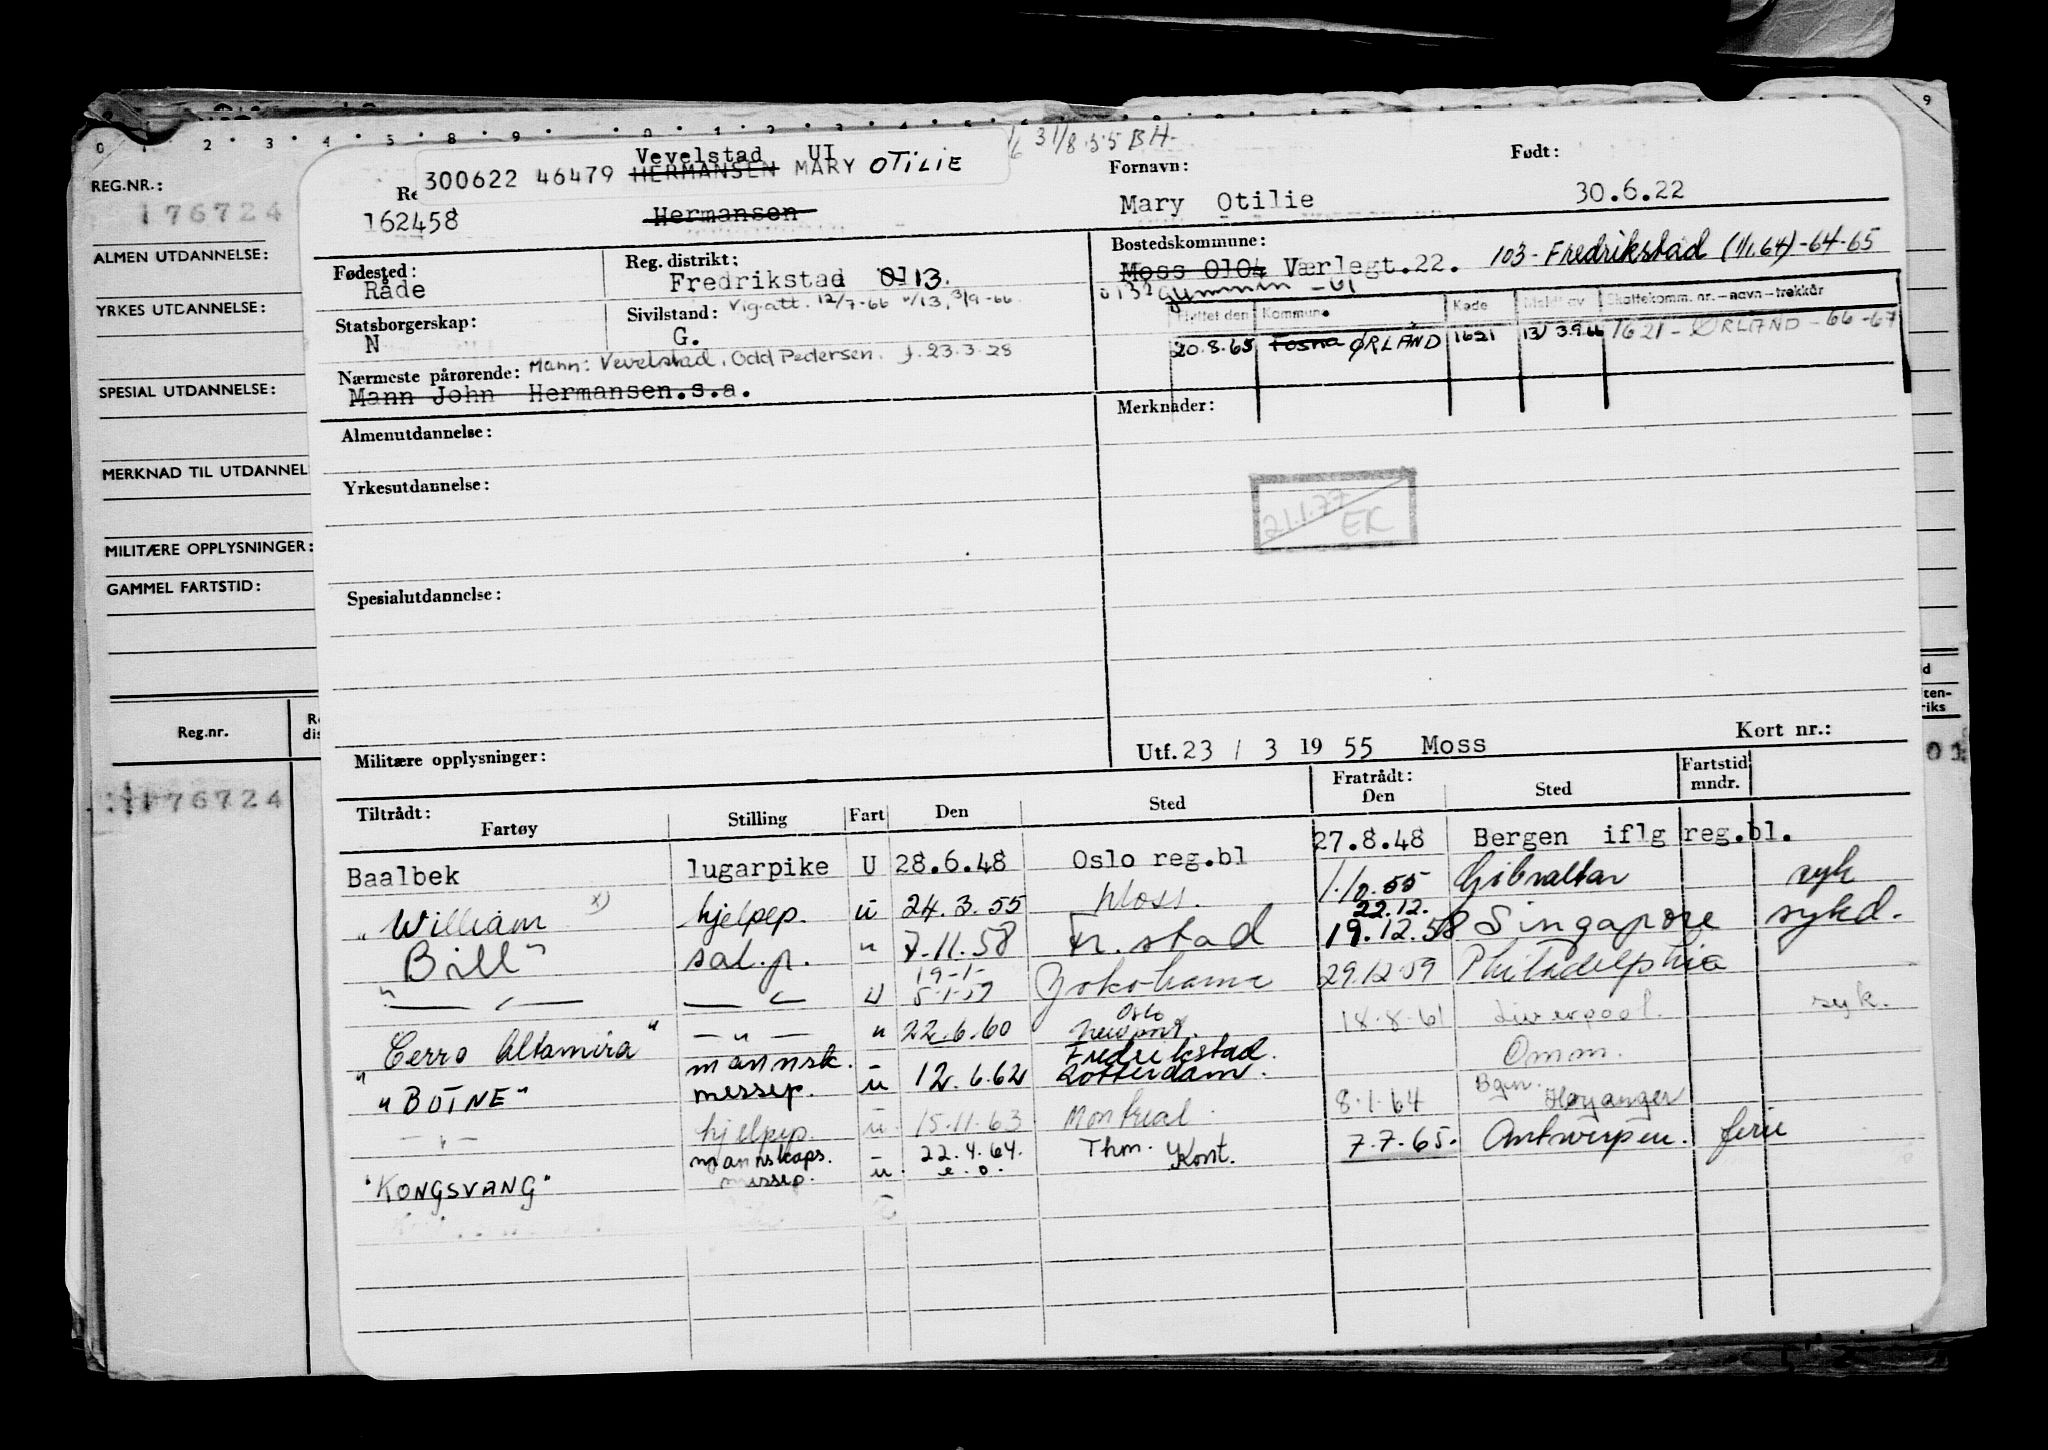 REG.NR.:
176724
ALMEN UTDANNELSE:
YRKES UTDANNELSE:
SPESIAL UTDANNELSE:
MERKNAD TIL UTDANNEL
MILITÆRE OPPLYSNINGER:
GAMMEL FARTSTID:
Reg.nr.
176724
31/8 55 BH-
Vevelstad UI
300622 46479 HERMANSEN MARY OTILIE
Re
162458 Hermansen
Fornavn:
Mary Otilie
Født:
30.6.22
Fødested:
Råde
Reg. distrikt:
Fredrikstad 0113.
Bostedskommune:
Moss 0104 Værlegt.22. 103 - Fredrikstad (1/1.64) - 64-65
Statsborgerskap:
N
Sivilstand: Vig.att. 12/7-66 3/9-66
G.
Flyttet den Kommune Kode Meldt av Skattekomm. nr. – navn – trekkår
20.8.65 Fosna ØRLAND 1621 13/ 3.9.66 1621 - ØRLAND - 66-67
Nærmeste pårørende: Mann: Vevelstad, Odd Pedersen. f. 23.3.28
Mann John Hermansen.s.a.
Almenutdannelse:
Merknader:
Yrkesutdannelse:
21.1.77
EK
Spesialutdannelse:
Militære opplysninger:
Utf. 23 / 3 19 55 Moss
Kort nr.:
Tiltrådt:
Fartøy Stilling Fart Den Sted
Fratrådt:
Den Sted
Fartstid
mndr.
Baalbek lugarpike U 28.6.48 Oslo reg.bl 27.8.48 Bergen iflg reg.bl.
"William x) hjelpep. u 24.3.55 Moss. 1.10.55 Gibraltar syk
22.12.
"Bill" sal.p. " 7.11.58 Fr.stad 19.12.58 Singapore sykd.
19-1-
— " — — " — U 5.1.59 Yokohama 29.12.59 Philadelphia
Oslo
"Cerro Altamira" — " — " 22.6.60 Newport. 18.8.61 Liverpool. syk.
mannsk. Fredrikstad. Omm.
"BOTNE" messep. u 12.6.62 Rotterdam.
Bgn.
— " — hjelpep. u 15.11.63 Montreal 8.1.64 Høyanger
mannskaps. 22.4.64. Thm. 7.7.65. Antwerpen. ferie
"KONGSVANG" messep. u. e.o. Kont.